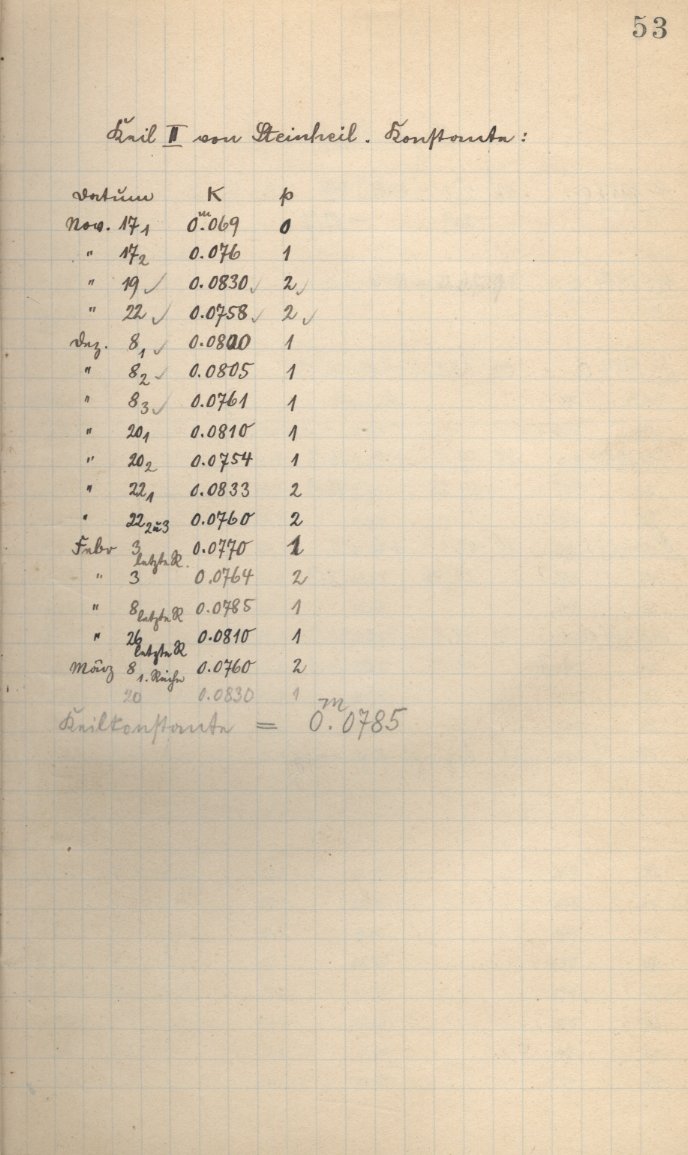 53
Keil II von Steinheil. Konstante:
Datum K p
Nov. 17₁ 0ᵐ.069 0
" 17₂ 0.076 1
" 19 ✓ 0.0830 ✓ 2 ✓
" 22 ✓ 0.0758 ✓ 2 ✓
Dez. 8₁ ✓ 0.0800 1
" 8₂ ✓ 0.0805 1
" 8₃ ✓ 0.0761 1
" 20₁ 0.0810 1
" 20₂ 0.0754 1
" 22₁ 0.0833 2
" 22₂ᵤ₃ 0.0760 2
Febr 3 letzte R. 0.0770 1
" 3 0.0764 2
" 8 letzte R 0.0785 1
" 26 letzte R 0.0810 1
März 8 1. Reihe 0.0760 2
20 0.0830 1
Keilkonstante = 0ᵐ.0785